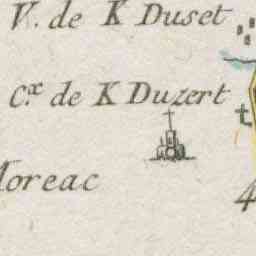 V. de K Duset
C.x de K Duzert
t
Moreac
4